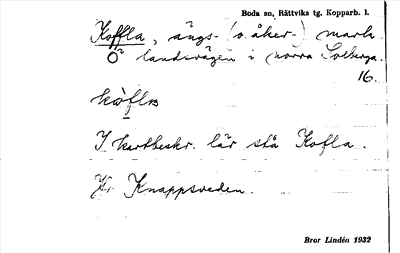 Boda sn, Rättviks tg. Kopparb. l.
Koffla, ängs- (o. åker-) mark
Ö landsvägen i norra Solberga.
16.
I kartbeskr. lär stå Kofla.
Knappsveden.
Bror Lindén 1932